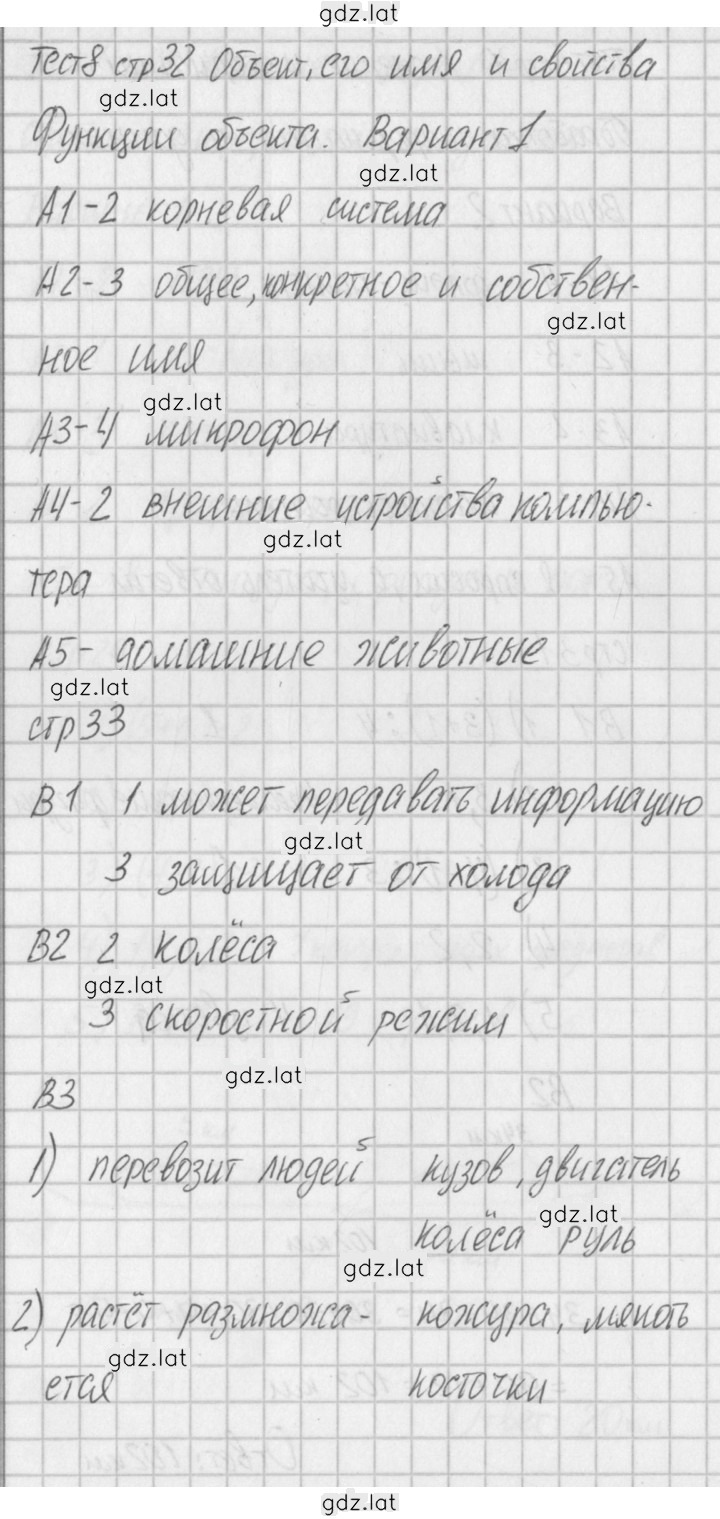 gdz.lat
Тест 8 стр 32 Объект, его имя и свойства
gdz.lat
Функции объекта. Вариант 1
gdz.lat
А1-2 корневая система
А2-3 общее, конкретное и собствен-
gdz.lat
ное имя
gdz.lat
А3-4 микрофон
А4-2 внешние устройства компью-
gdz.lat
тера
А5- домашние животные
gdz.lat
стр 33
В1 1 может передавать информацию
gdz.lat
3 защищает от холода
В2 2 колёса
gdz.lat
3 скоростной режим
gdz.lat
В3
1) перевозит людей кузов, двигатель
gdz.lat
колёса руль
gdz.lat
2) растёт размножа- кожура, мякоть
gdz.lat
ется косточки
gdz.lat